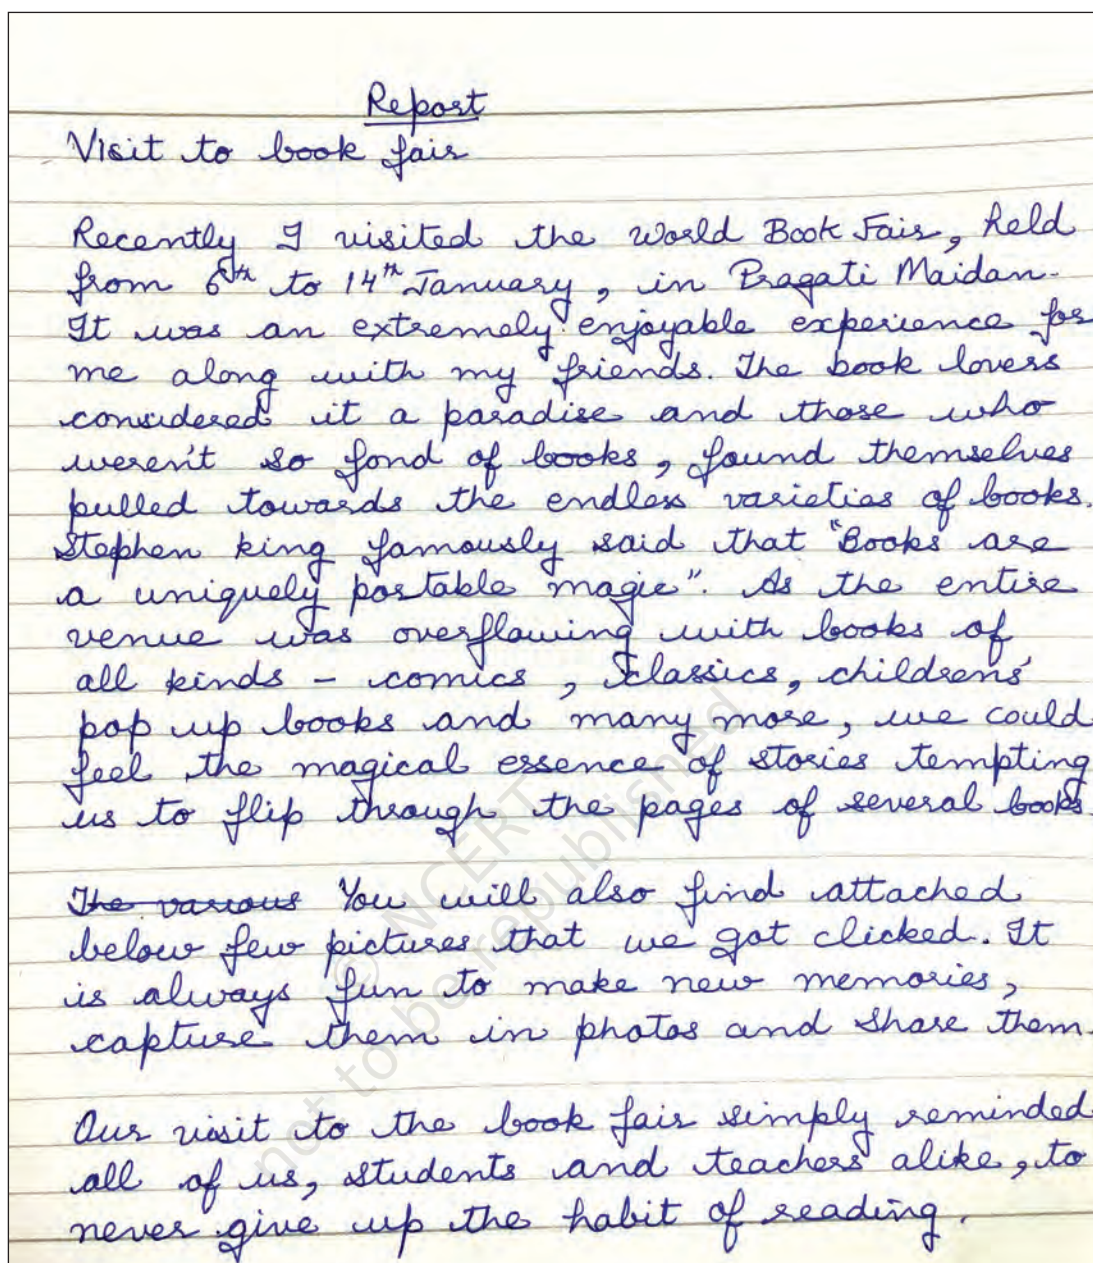 Report
Visit to book fair
Recently I visited the World Book Fair, held
from 6th to 14th January, in Pragati Maidan.
It was an extremely enjoyable experience for
me along with my friends. The book lovers
considered it a paradise and those who
weren't so fond of books, found themselves
pulled towards the endless varieties of books.
Stephen king famously said that "Books are
a uniquely portable magic". As the entire
venue was overflowing with books of
all kinds - comics, classics, childrens'
pop up books and many more, we could
feel the magical essence of stories tempting
us to flip through the pages of several books.
The various You will also find attached
below few pictures that we got clicked. It
is always fun to make new memories,
capture them in photos and share them.
Our visit to the book fair simply reminded
all of us, students and teachers alike, to
never give up the habit of reading.
© NCERT
not to be republished